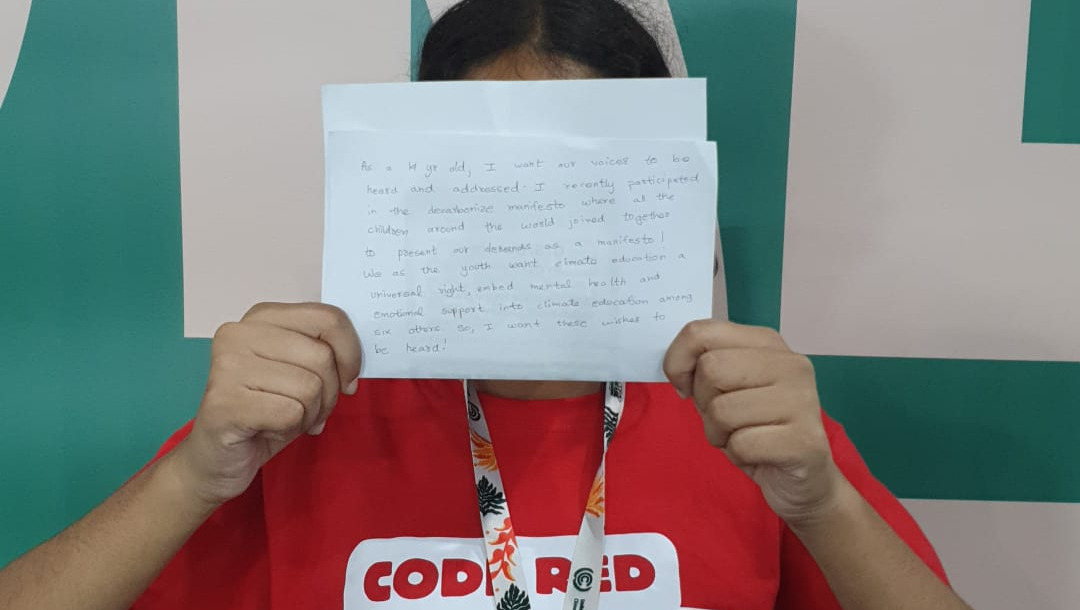 As a 14 yr old, I want our voices to be
heard and addressed. I recently participated
in the decarbonize manifesto where all the
children around the world joined together
to present our demands as a manifesto!
We as the youth want climate education a
universal right, embed mental health and
emotional support into climate education among
six others so, I want these wishes to
be heard!
CODE RED